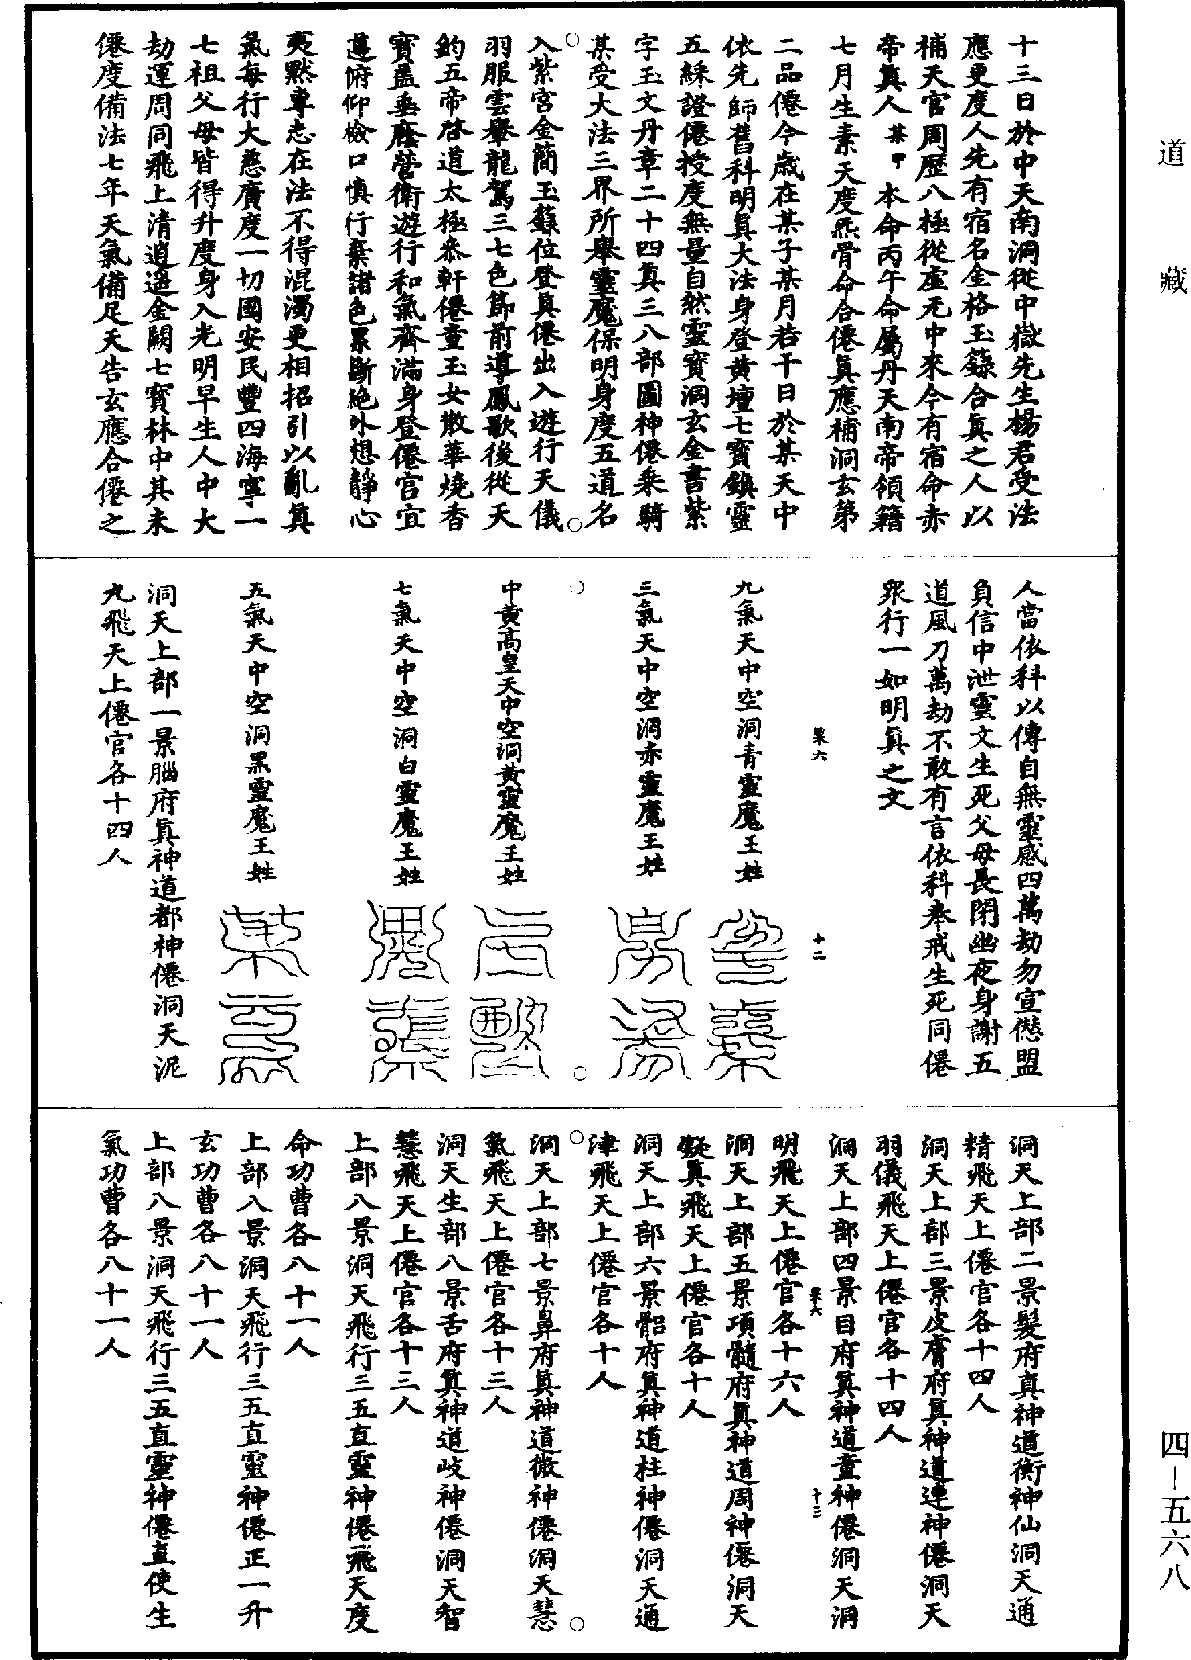 道藏
十三日於中天南洞從中嶽先生楊君受法
應更度人先有宿名金格玉籙合真之人以
補天官周歷八極從虛无中來今有宿命赤
帝真人某甲本命丙午命屬丹天南帝領籍
七月生素天度炁骨命合僊真應補洞玄第
二品僊今歲在某子某月若干日於某天中
依先師舊科明真大法身登黃壇七寶鎮靈
五綵證僊授度無量自然靈寶洞玄金書紫
字玉文丹章二十四真三八部圖神僊乘騎
某受大法三界所舉靈魔保明身度五道名
入紫宮金簡玉籙位登真僊出入遊行天儀
羽服雲轝龍駕三七色節前導鳳歌後從天
鈞五帝啓道太極參軒僊童玉女散華燒香
寶蓋垂廕營衛遊行和氣齊滿身登僊宮宜
遵俯仰檢口慎行棄諸色累斷絕外想靜心
夷默專志在法不得混濁更相招引以亂真
氣每行大慈廣度一切國安民豐四海寧一
七祖父母皆得升度身入光明早生人中大
劫運周同飛上清逍遙金闕七寶林中其未
僊度備法七年天氣備足天告玄應合僊之
人當依科以傳自無靈感四萬劫勿宣僁盟
負信中泄靈文生死父母長閉幽夜身謝五
道風刀萬劫不敢有言依科奉戒生死同僊
衆行一如明真之文
十二
九氣天中空洞青靈魔王姓
三氣天中空洞赤靈魔王姓
中黃高皇天中空洞黃靈魔王姓
七氣天中空洞白靈魔王姓
五氣天中空洞黑靈魔王姓
洞天上部一景腦府真神道都神僊洞天泥
丸飛天上僊官各十四人
洞天上部二景髮府真神道衡神仙洞天通
精飛天上僊官各十四人
洞天上部三景皮膚府真神道連神僊洞天
羽儀飛天上僊官各十四人
洞天上部四景目府真神道童神僊洞天洞
十三
明飛天上僊官各十六人
洞天上部五景項髓府真神道周神僊洞天
凝真飛天上僊官各十人
洞天上部六景䯒府真神道柱神僊洞天通
津飛天上僊官各十人
洞天上部七景鼻府真神道微神僊洞天慧
氣飛天上僊官各十三人
洞天生部八景舌府真神道岐神僊洞天智
慧飛天上僊官各十三人
上部八景洞天飛行三五直靈神僊飛天度
命功曹各八十一人
上部八景洞天飛行三五直靈神僊正一升
玄功曹各八十一人
上部八景洞天飛行三五直靈神僊直使生
氣功曹各八十一人
四－五六八